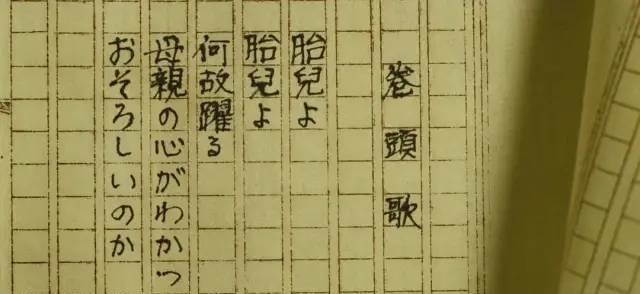 巻頭歌
胎兒よ
胎兒よ
何故躍る
母親の心がわかつ
おそろしいのか